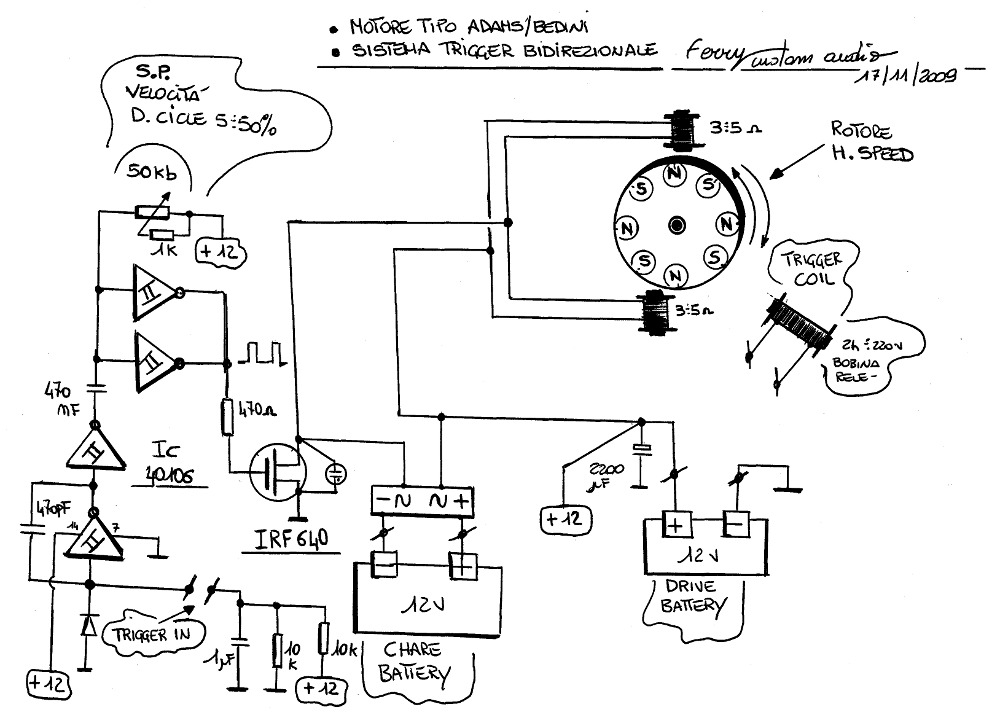 • MOTORE TIPO ADAMS/BEDINI
• SISTEMA TRIGGER BIDIREZIONALE
Ferry
17/11/2009
S.P.
VELOCITÀ
D. CICLE 5÷50%
50kb
1K
+12
3÷5 Ω
ROTORE
H. SPEED
N
S
S
N
N
S
S
N
TRIGGER
COIL
3÷5Ω
2h÷220v
BOBINA
RELE-
470
nF
470Ω
Ic
40106
470pF
14
7
IRF640
2200
µF
+12
- ~ ~ +
- +
12V
CHARE
BATTERY
+ -
12V
DRIVE
BATTERY
TRIGGER IN
1µF
10
K
10K
+12
+12